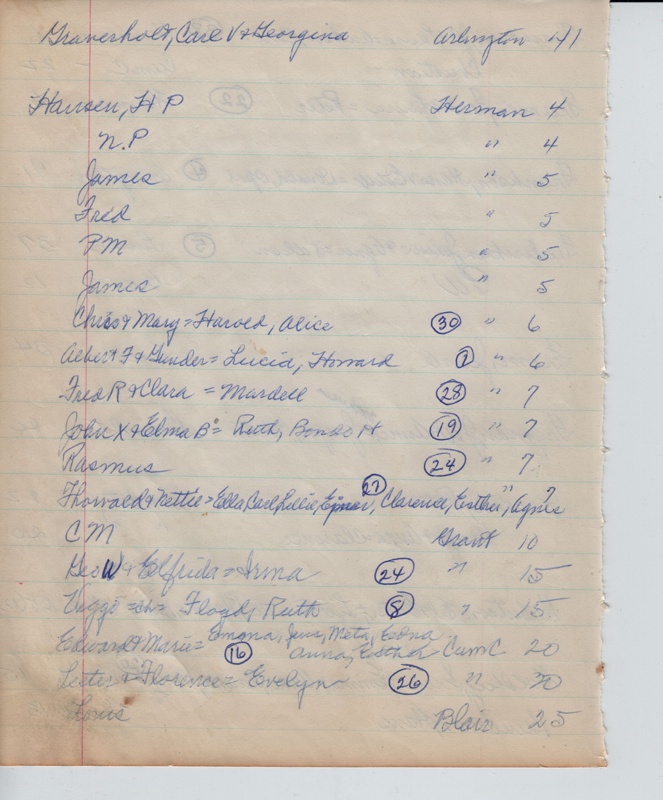 Graverholt, Carl V & Georgina Arlington 41
Hansen, H P Herman 4
N.P " 4
James " 5
Fred " 5
PM " 5
James " 5
Chris & Mary = Harold, Alice 30 " 6
Albert F & Gunder = Lucia, Howard 7 " 6
Fred R & Clara = Mardell 28 " 7
John X & Elma B = Ruth, H 19 " 7
Rasmus 24 " 7
Thorvald & Nettie = Ella Carl, Lillie, Ejnar, 27 Clarence, Esther, Agnes " 7
C M Grant 10
Geo W & Elfrida = Irma 24 " 15
Viggo = ch = Floyd, Ruth 8 " 15
Edward & Marie = Emona, Jens, Meta, Edna
16 Anna, Esther CumC 20
Lester & Florence = Evelyn 26 " 20
Louis Blair 25